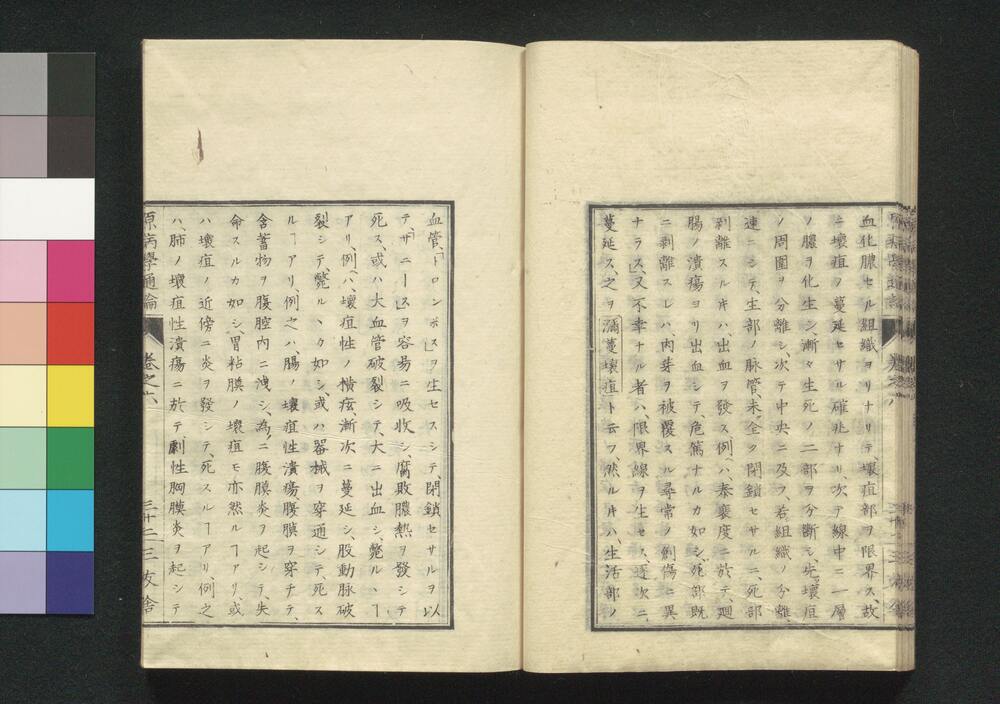 血化膿セル組織ヨリナリテ、壞疽部ヲ限界ス、故
ニ壞疽ノ蔓延セサル確兆ナリ、次テ線中ニ一層
ノ膿ヲ化生シ、漸々生死ノ二部ヲ分斷シ、先ツ壞疽
ノ周圍ヲ分離シ、次テ中央ニ及フ、若シ組織ノ分離、
速ニシテ、生部ノ脉管、未タ全ク閉鎖セサルニ、死部
剥離スルキハ、出血ヲ發ス、例ハ、泰褒度ニ於テ、廻
腸ノ潰瘍ヨリ出血シテ、危篤ナルカ如シ、死部既
ニ剥離スレハ、肉芽ヲ被覆スル尋常ノ創傷ニ異
ナラス、又不幸ナル者ハ、限界線ヲ生セス、逐次ニ
蔓延ス、之ヲ瀰蔓壞疽ト云フ、然ルキハ、生活部ノ
血管、「トロンボス」ヲ生セスシテ閉鎖セサルヲ以
テ、「サニース」ヲ容易ニ吸收シ、腐敗膿熱ヲ發シテ
死ス、或ハ大血管破裂シテ、大ニ出血シ、斃ルヽヿ
アリ、例ハ、壞疽性ノ横痃、漸次ニ蔓延シ、股動脉破
裂シテ、斃ルヽカ如シ、或ハ器械ヲ穿通シテ、死ス
ルヿアリ、例之ハ、腸ノ壞疽性潰瘍、腹膜ヲ穿チテ、
含蓄物ヲ腹腔内ニ洩シ、為ニ腹膜炎ヲ起シテ、失
命スルカ如シ、胃粘膜ノ壞疽モ亦然ルヿアリ、或
ハ壞疽ノ近傍ニ炎ヲ發シテ、死スルヿアリ、例之
ハ、肺ノ壞疽性潰瘍ニ於テ劇性胸膜炎ヲ起シテ
原病學通論
卷之六
三十二
三友舎